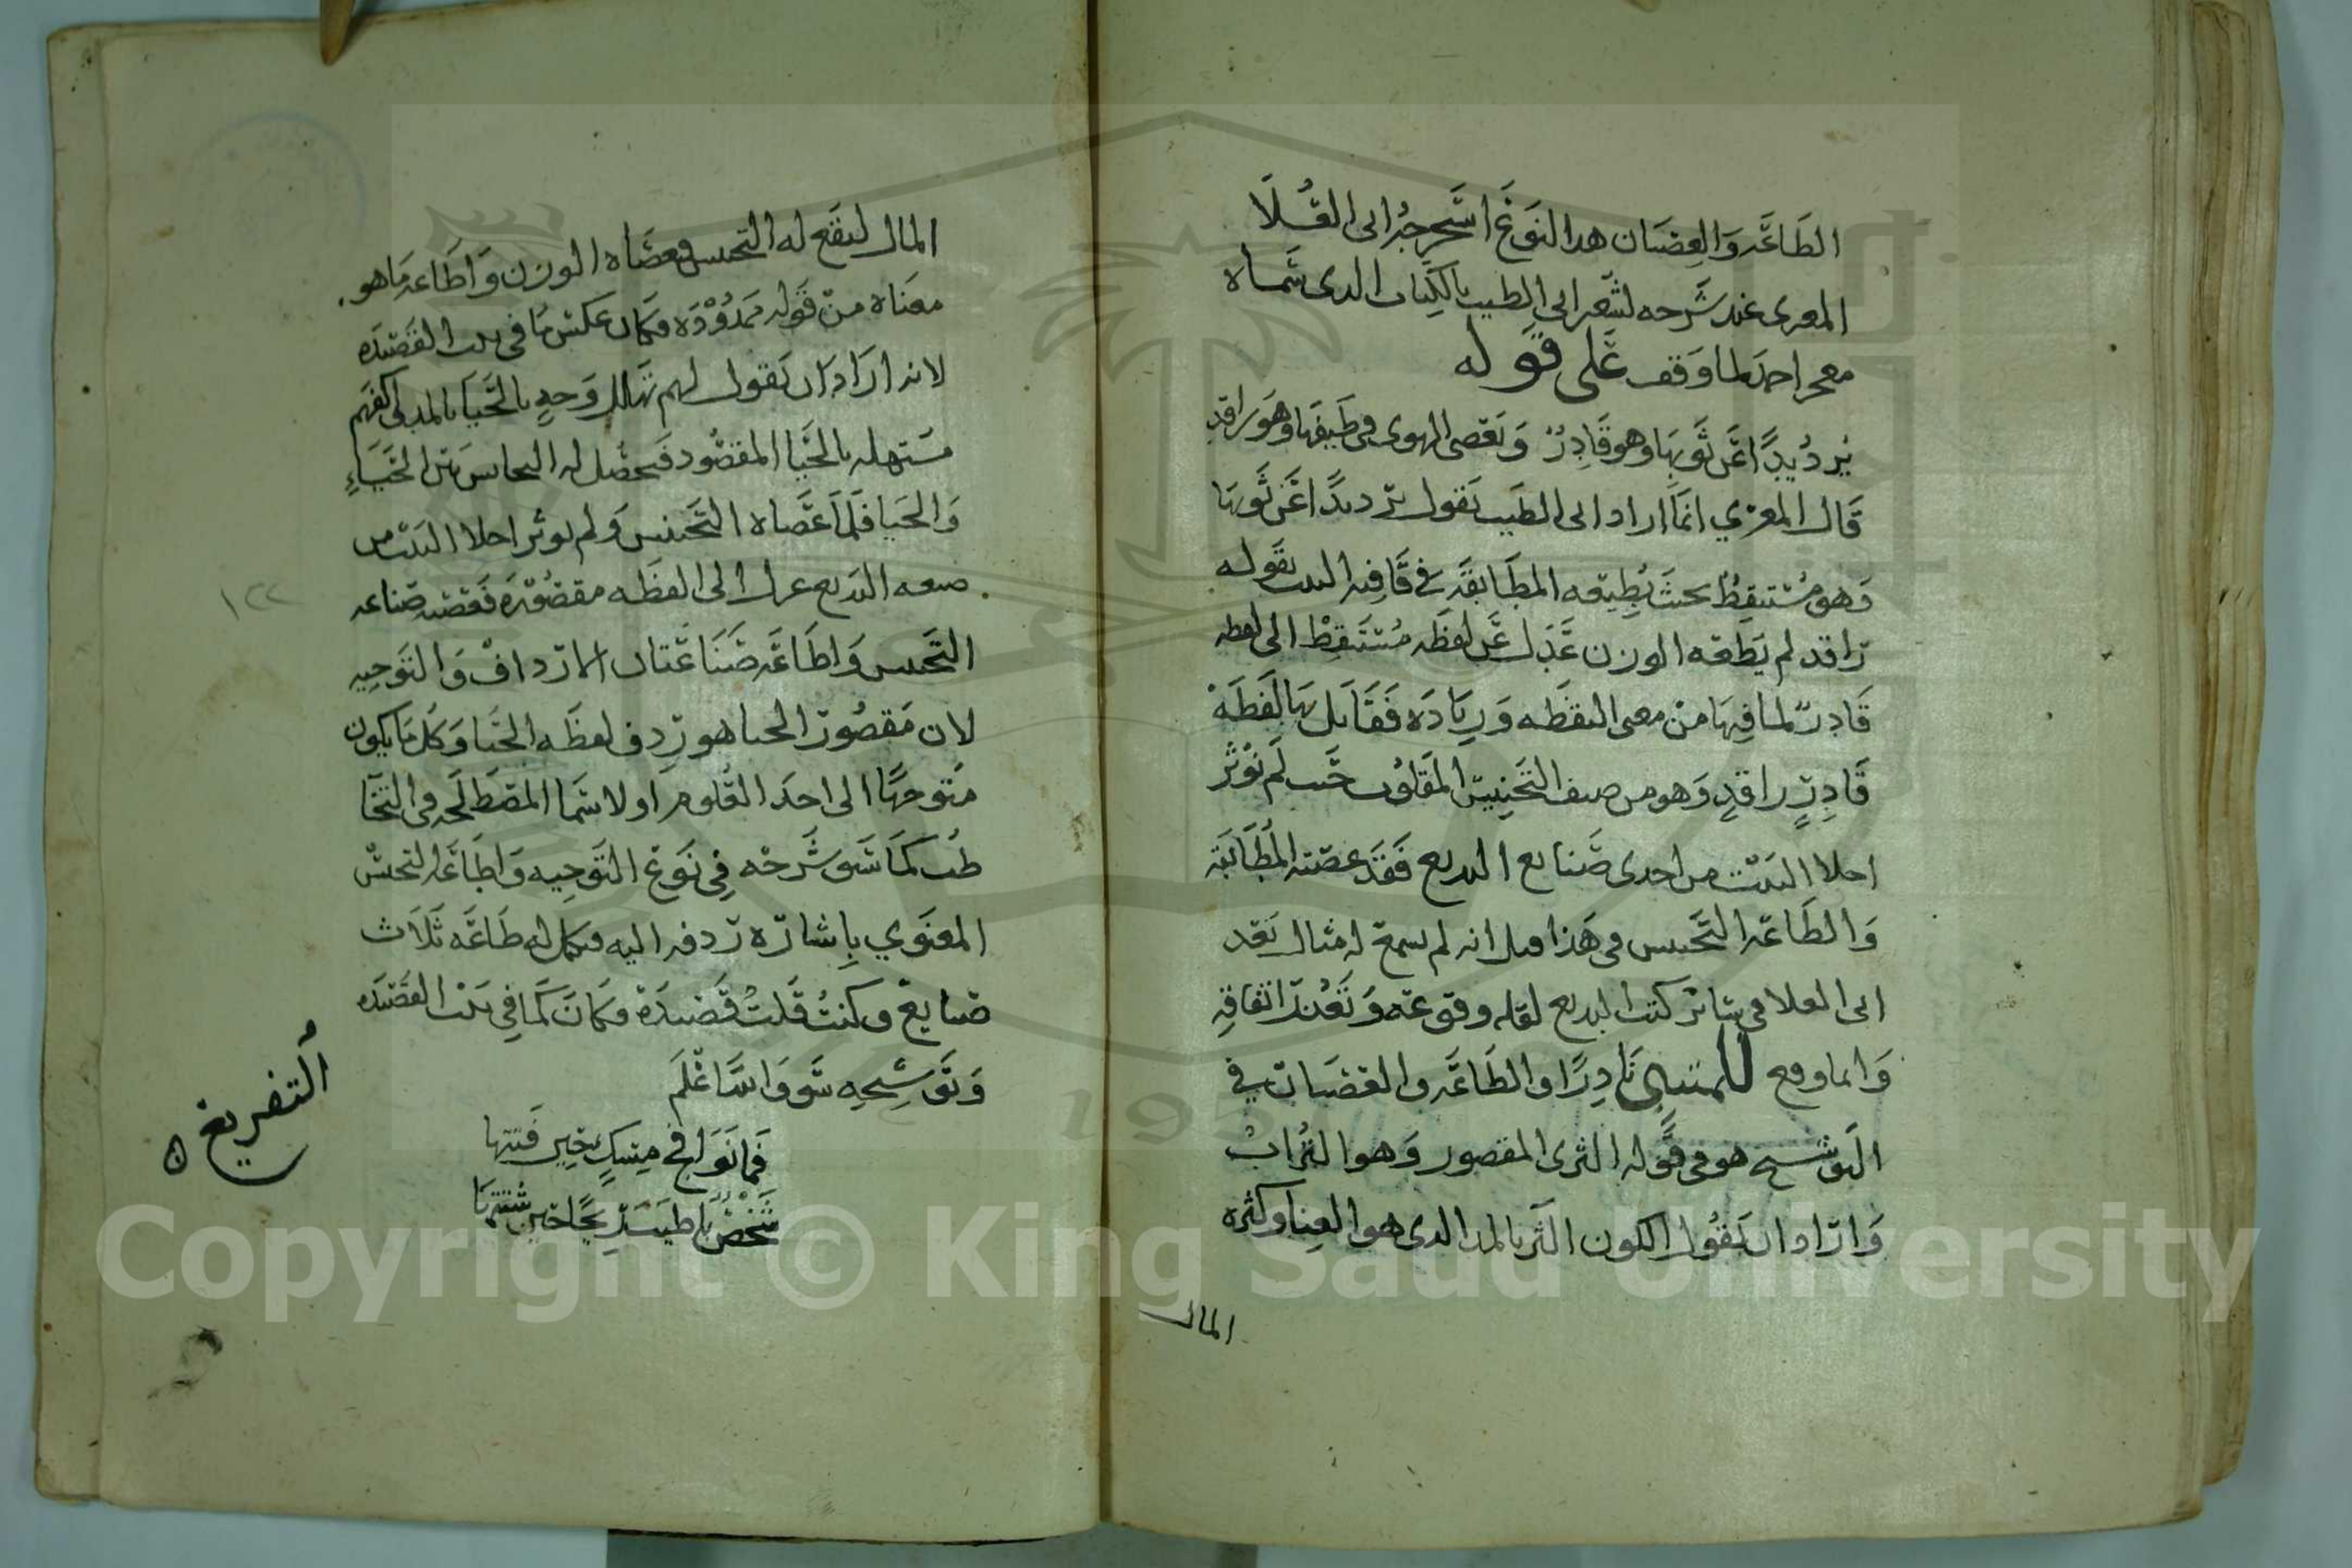 الطاعة والعصيان هدا النوع استخرجه ابى العلا
المعرى عند شرحه لشعر ابى الطيب بالكتاب الدى سماه
معجز احمد لما وقف على قوله
يرد يدًا عن ثوبها وهو قادرٌ وتعصى الهوى فى طيفها وهو راقدِ
قال المعري انما اراد ابى الطيب يقول يرد يدًا عن ثوبها
وهو مستيقظٌ بحيث يطيعه المطابقة في قافيه البيت بقوله
راقد لم يطعه الوزن عدل عن لفظه مستيقظ الى لفظه
قادرٌ لما فيها من معنى اليقظه وزياده فقابل بها لفظة
قادرٍ راقدٍ وهو من صنف التجنيس المقلوب حيث لم يؤثر
احلا البيت من احدى صنايع البديع فقد عصته المطابقة
والطاعه التجنيس فى هذا قيل انه لم يسمع له مثال بعد
ابى العلا فى سائر كتب البديع لقله وقوعه وتعذر اتفاقه
وانما وقع للمتنبى نادرًا والطاعه والعصيان في
التوشيح هو فى قوله الثرى المقصور وهو التراب
واراد ان يقول الكون الثر بالمد الدى هو الغنا وكثره
المال
المال ليقع له التجنيس فعصاه الوزن واطاعه ما هو
معناه من قوله ممدوده فكان عكس ما فى بيت القصيده
لانه اراد ان يقول لهم تهلل وجه بالحيا بالمد اكفهم
مستهله بالحيا المقصود فيحصل له الجناس بين الحياءِ
والحيا فلما عصاه التجنيس ولم يوثر احلا البيت من
صنعه البديع عدل الى لفظه مقصوره فعصته صناعه
التجنيس واطاعه صناعتان الارداف والتوجيه
لان مقصور الحيا هو ردف لفظه الحيا وكل ما يكون
متوجهًا الى احد العلوم او لاسما المصطلحه فى التخا
طب كما سوى شرحه في نوع التوجيه واطاعه التجنس
المعنوي بإشارة ردفه اليه فكمل له طاعه ثلاث
صنايع وكنتُ قلتُ قصيدة فكان كما في بيت القصيده
وتوشيحه سوى واسا علم
فما نوافح مسكٍ حين فتتها
شخصٌ باطيب ريحًا حين شتتها
التفريع
١٢٢
Copyright © King Saud University
195